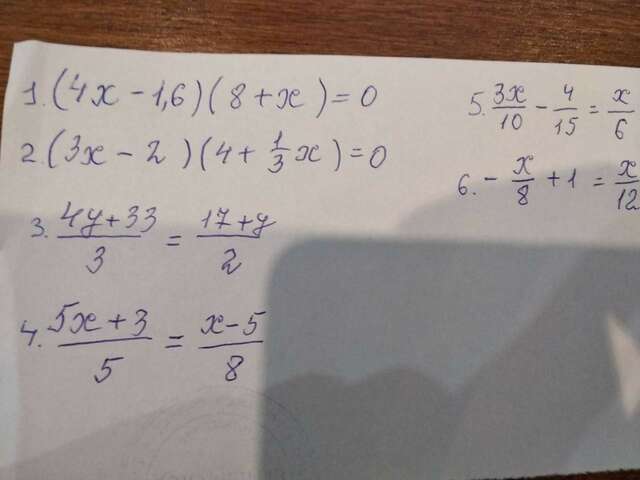 1. (4x - 1,6)(8 + x) = 0
2. (3x - 2)(4 + 1/3 x) = 0
3. (4y + 33)/3 = (17 + y)/2
4. (5x + 3)/5 = (x - 5)/8
5. 3x/10 - 4/15 = x/6
6. - x/8 + 1 = x/12